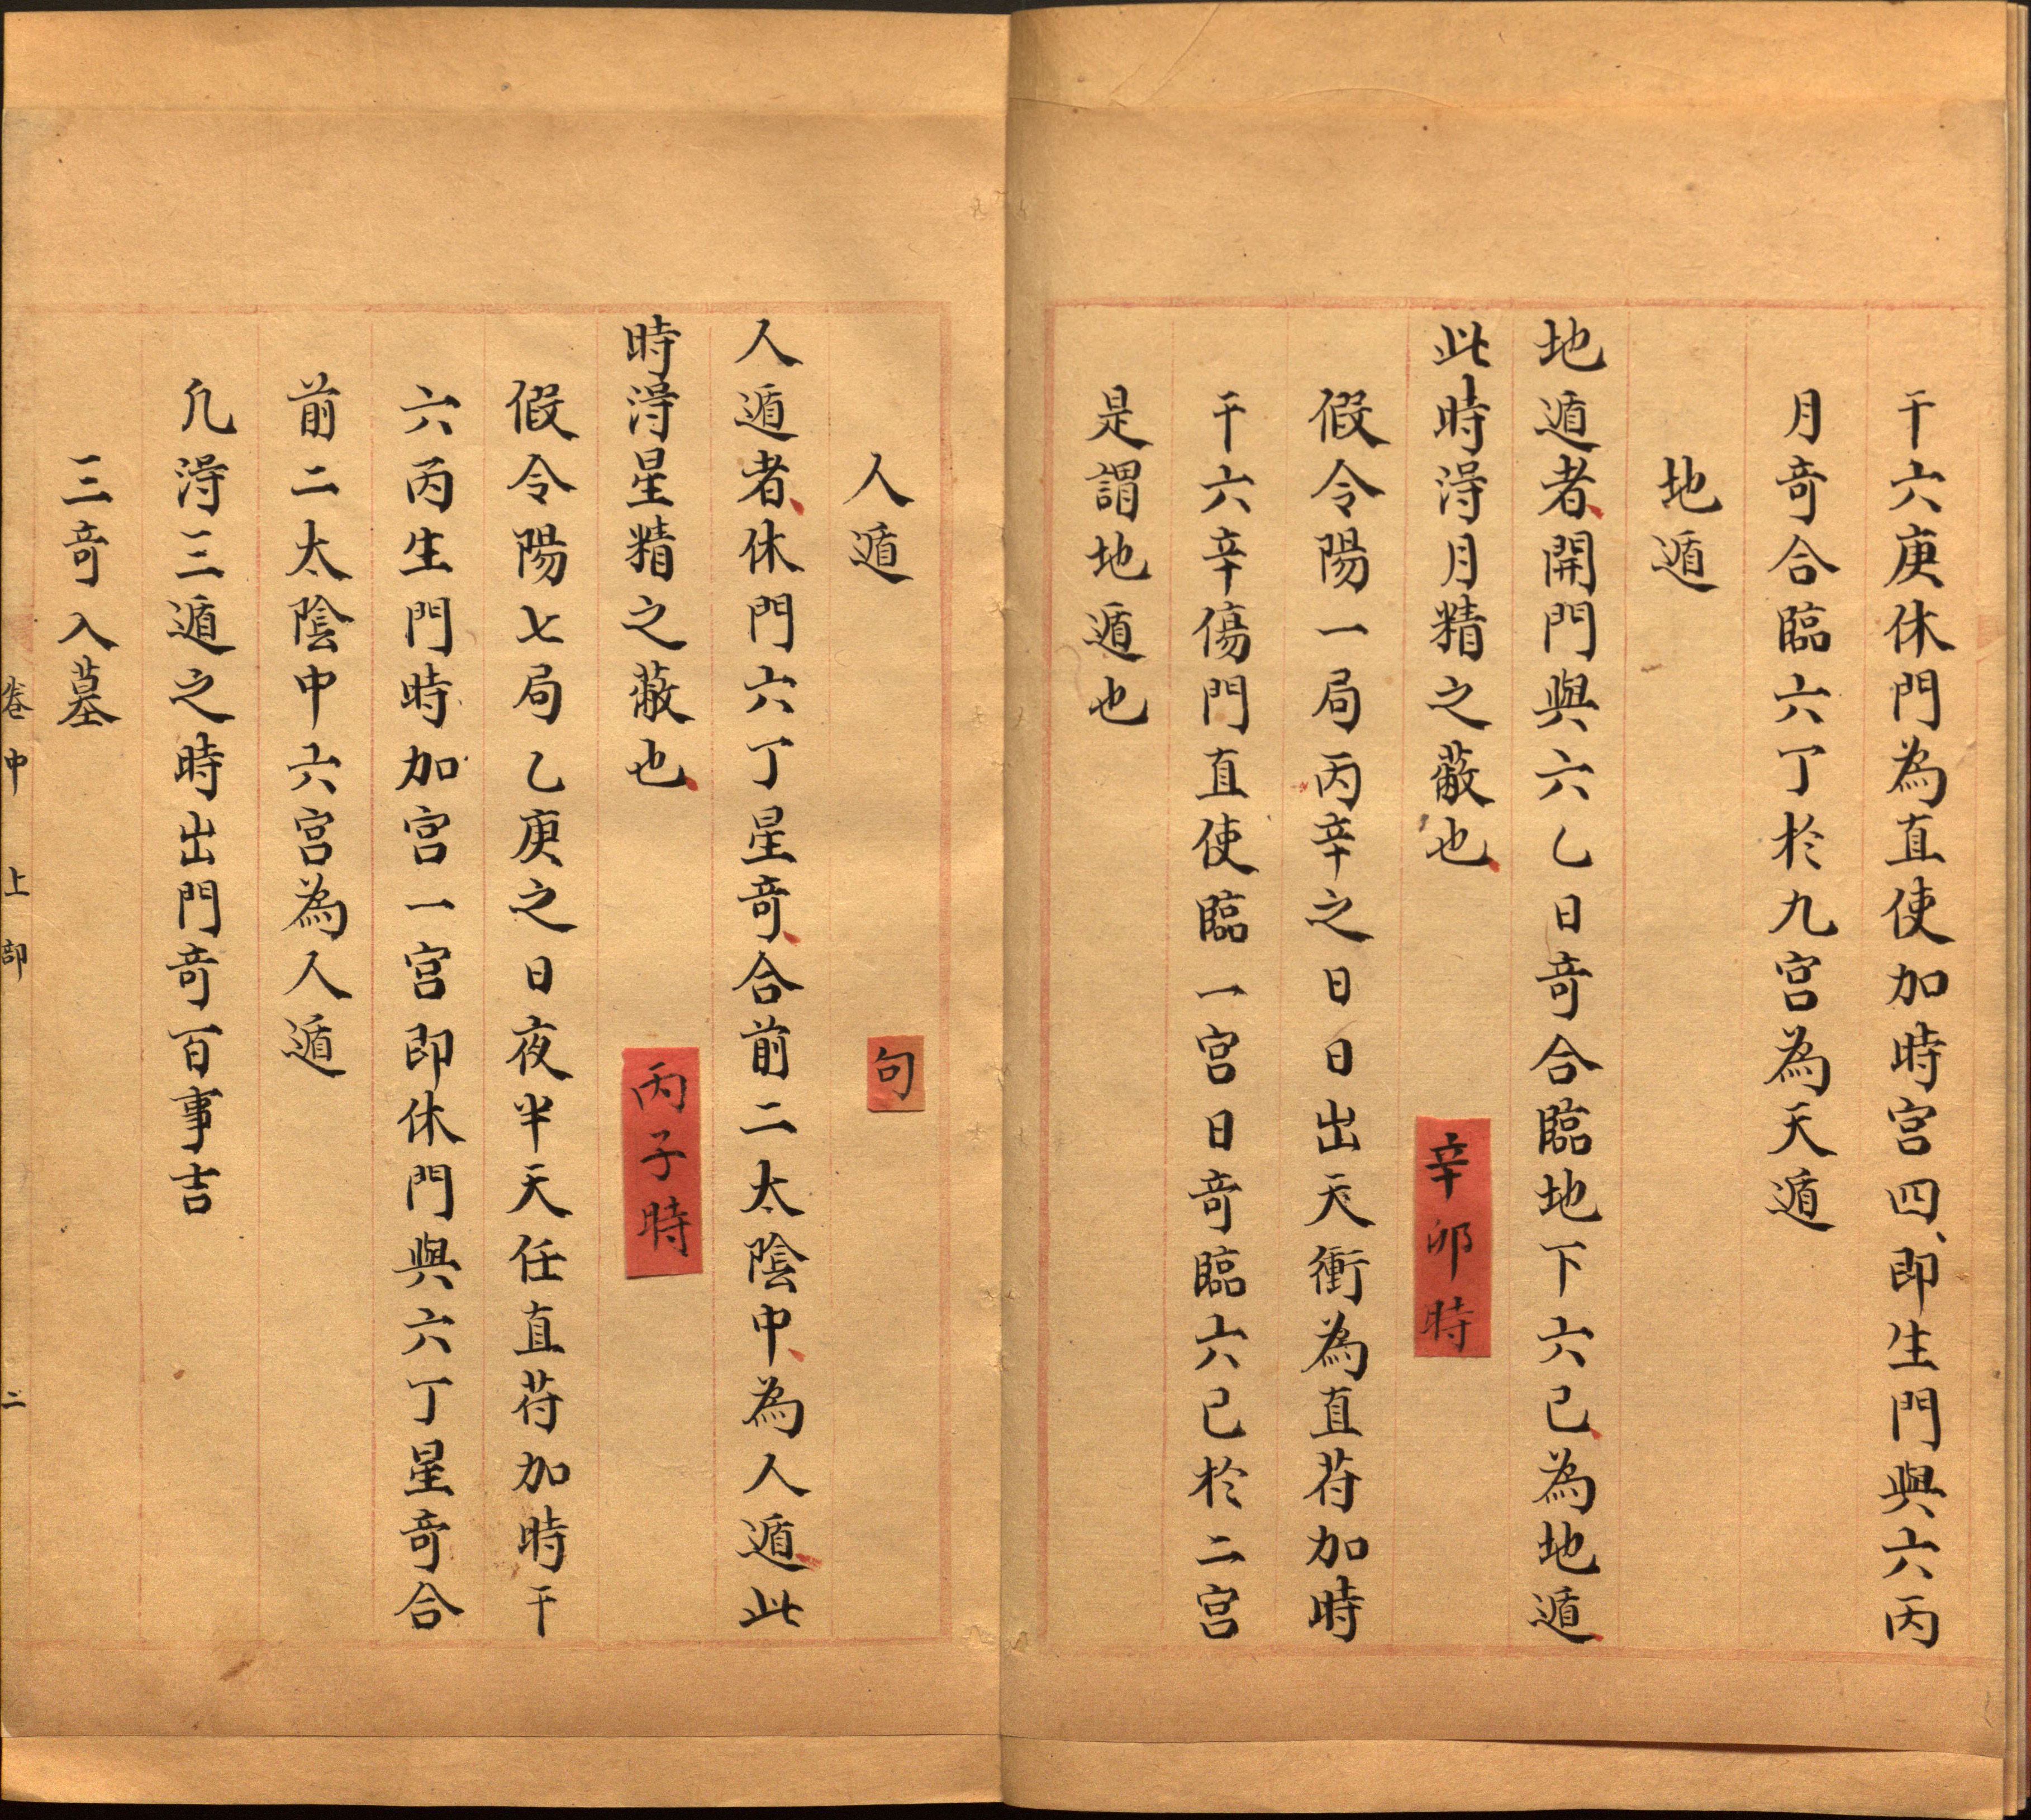 干六庚休門為直使加時宮四、即生門與六丙
月竒合臨六丁於九宮為天遁
地遁
地遁者、開門與六乙日竒合臨地下六己、為地遁、
此時淂月精之蔽也、
辛卯時
假令陽一局丙辛之日日出天衝為直苻加時
干六辛傷門直使臨一宮日竒臨六己於二宮
是謂地遁也
人遁
句
人遁者、休門六丁星竒、合前二太陰中、為人遁、此
時淂星精之蔽也、
丙子時
假令陽七局乙庚之日夜半天任直苻加時干
六丙生門時加宮一宮即休門與六丁星竒合
前二太陰中六宮為人遁
凡淂三遁之時出門竒百事吉
三竒入墓
卷中 上部 二